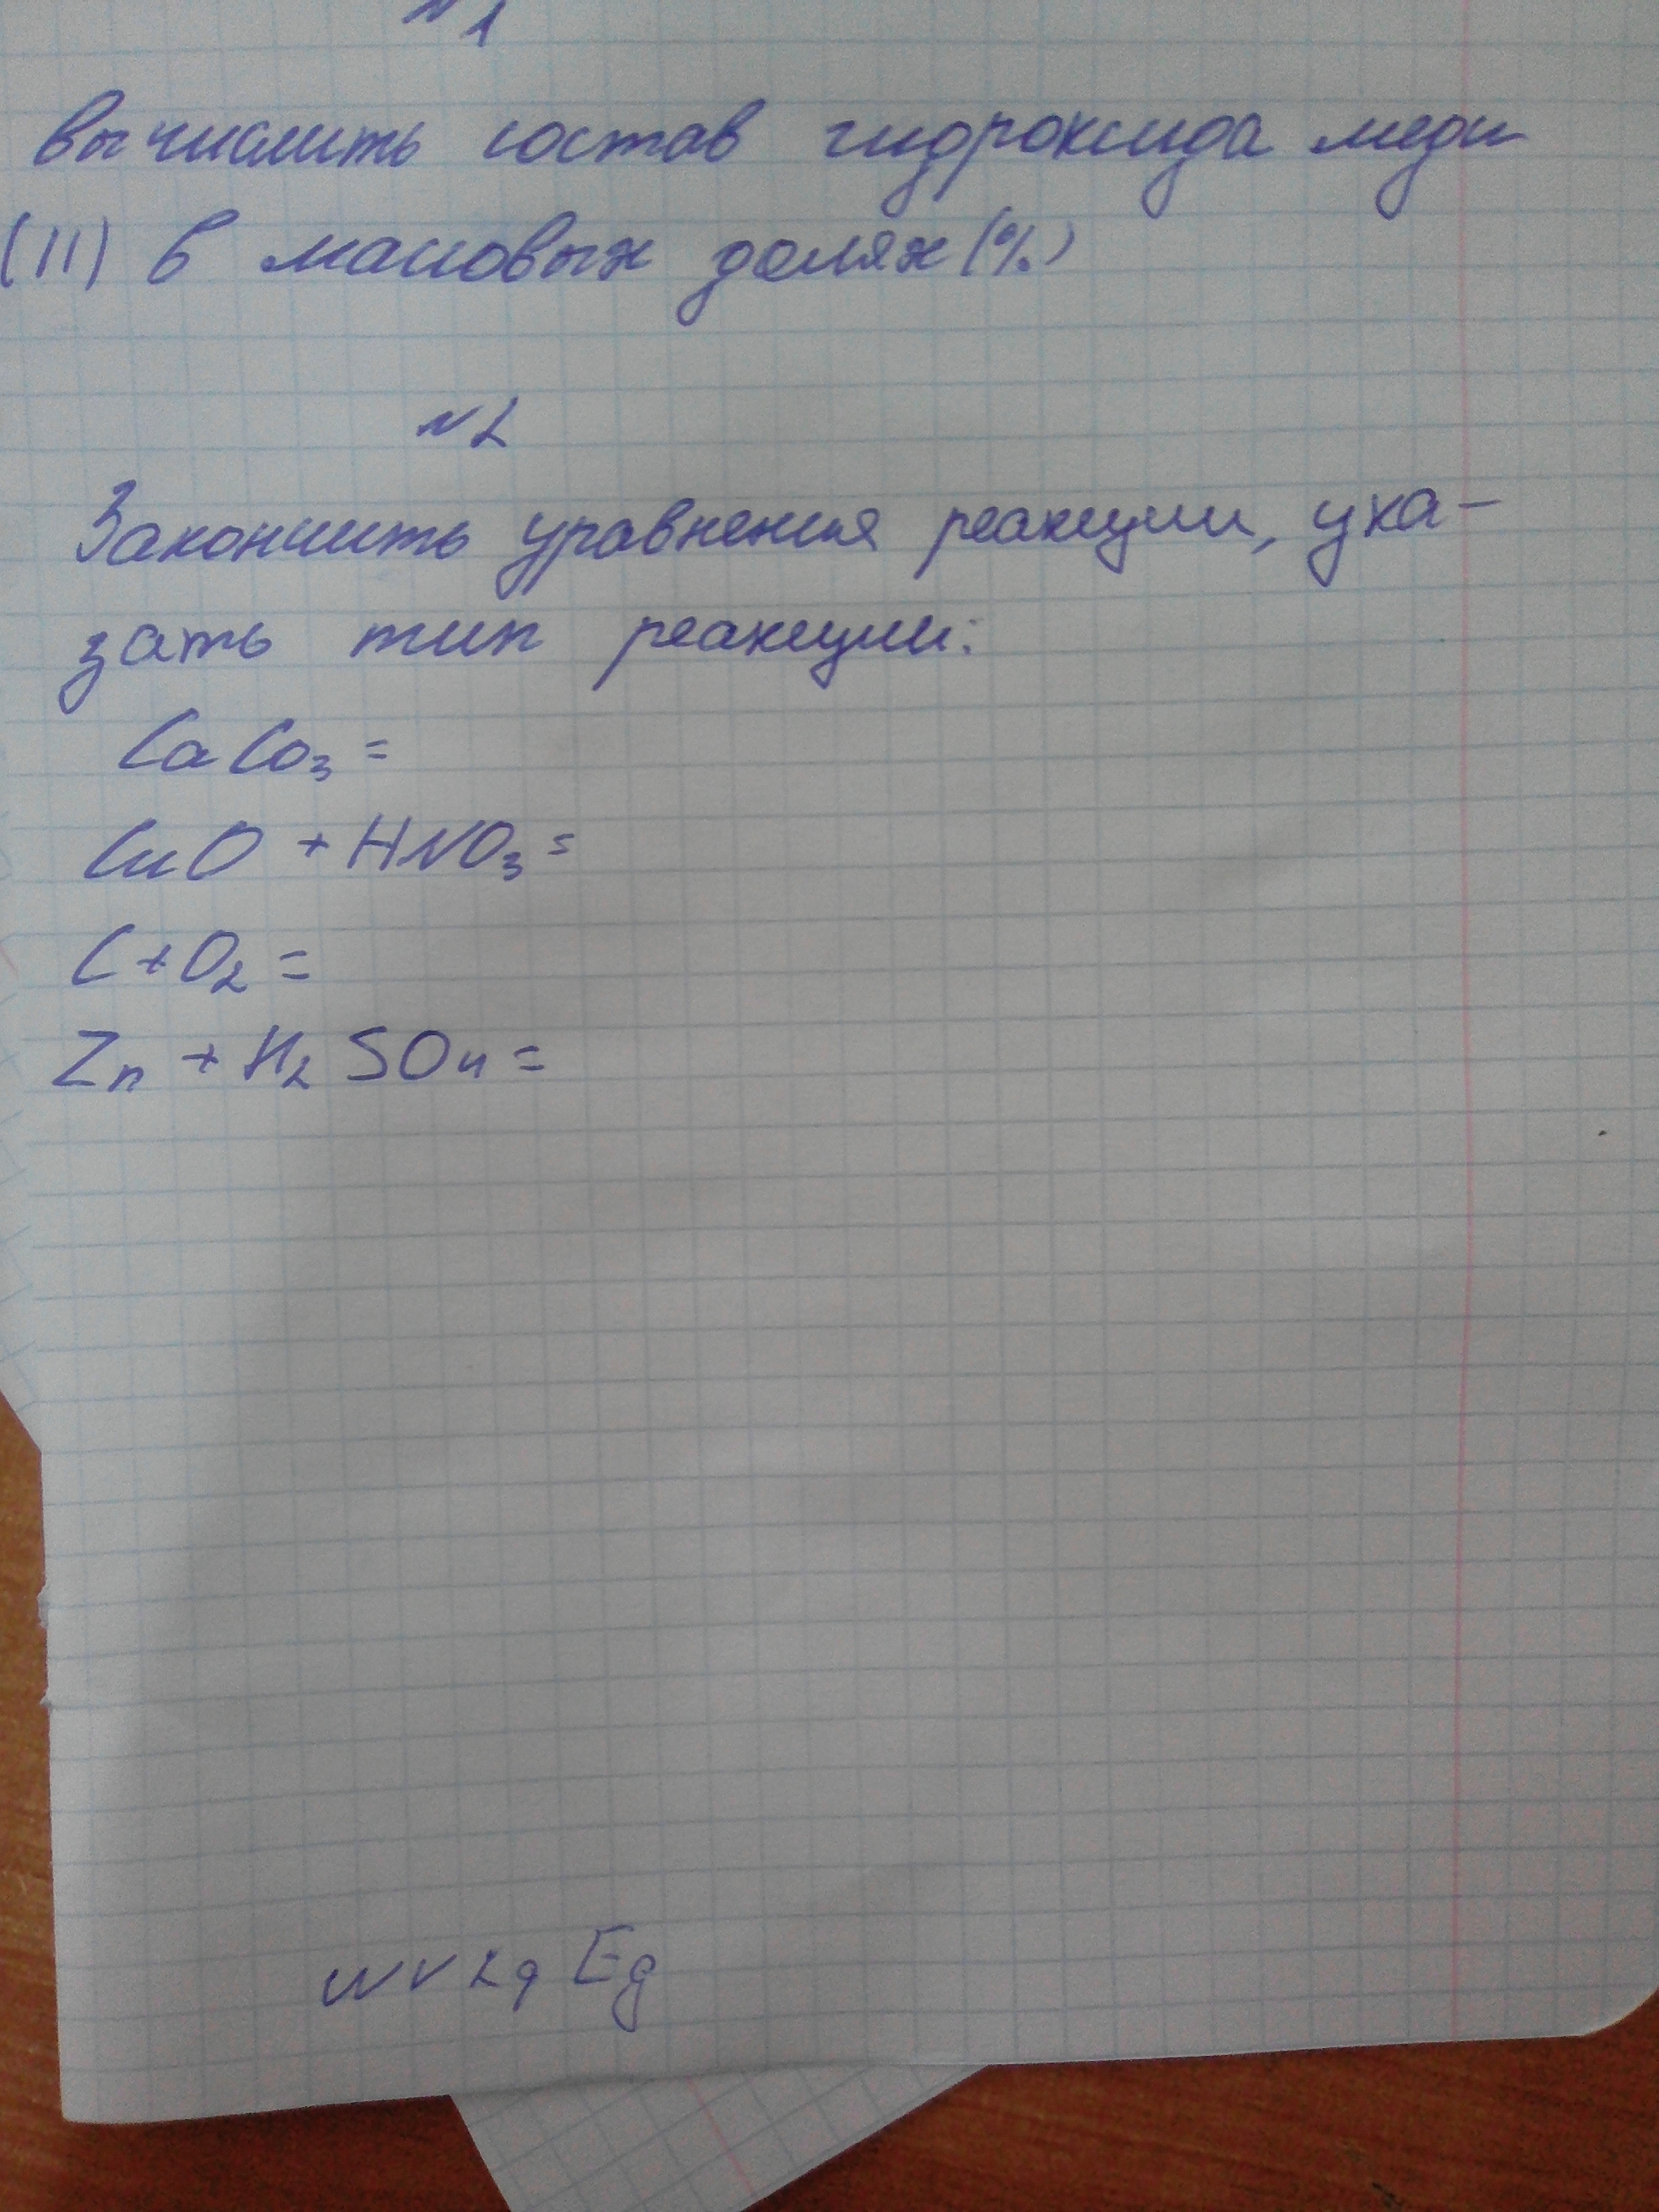 №1
вычислить состав гидроксида меди
(II) в массовых долях (%)
№2
Закончить уравнения реакции, ука-
зать тип реакции:
CaCO₃ =
CuO + HNO₃ =
C + O₂ =
Zn + H₂SO₄ =